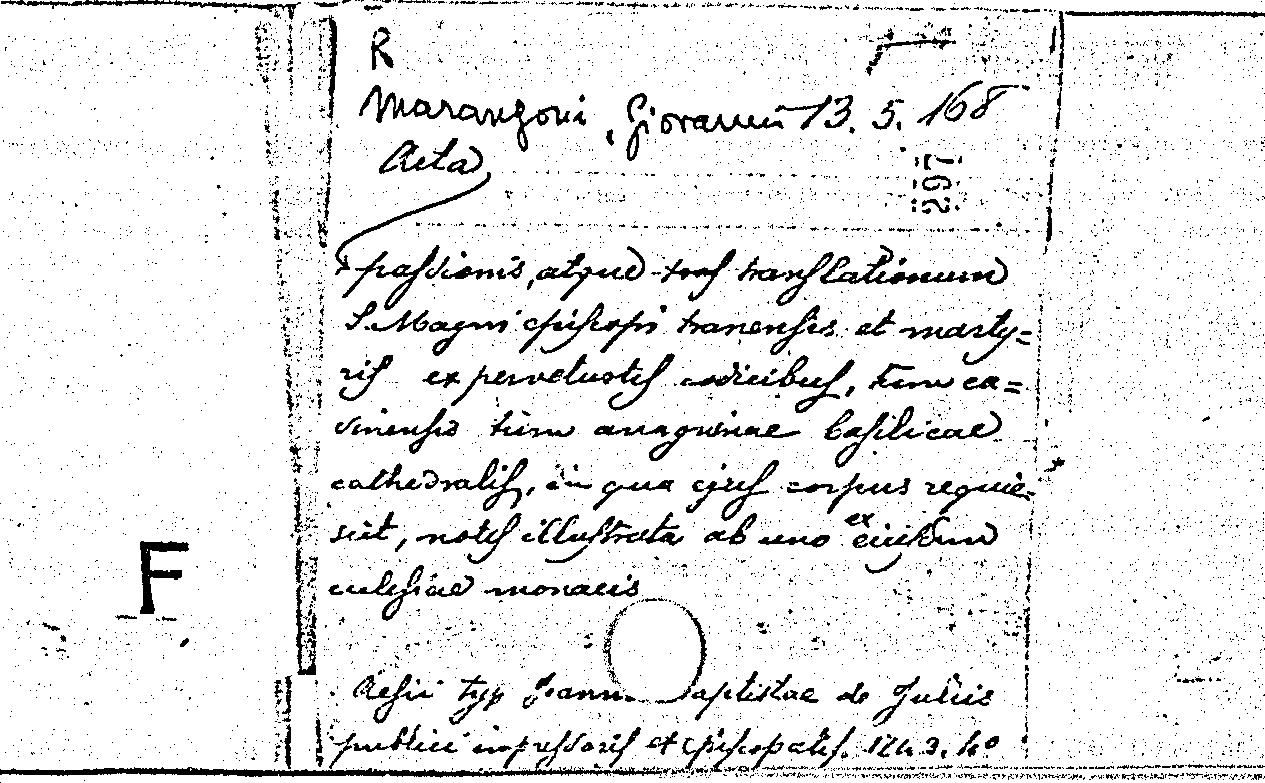 R
Marangoni, Giovanni 13. 5. 168
297
Acta
passionis, atque translationum
S. Magni episcopi tranensis et marty=
ris ex pervetustis codicibus, tum ca=
sinensis tum anagninae basilicae
cathedralis, in qua ejus corpus requie=
scit, notis illustrata ab uno ex eiusdem
eulesiae
F
Aesii typ Joann aptistae de Juliis
publici impressoris et episcopalis. 1743. 4°